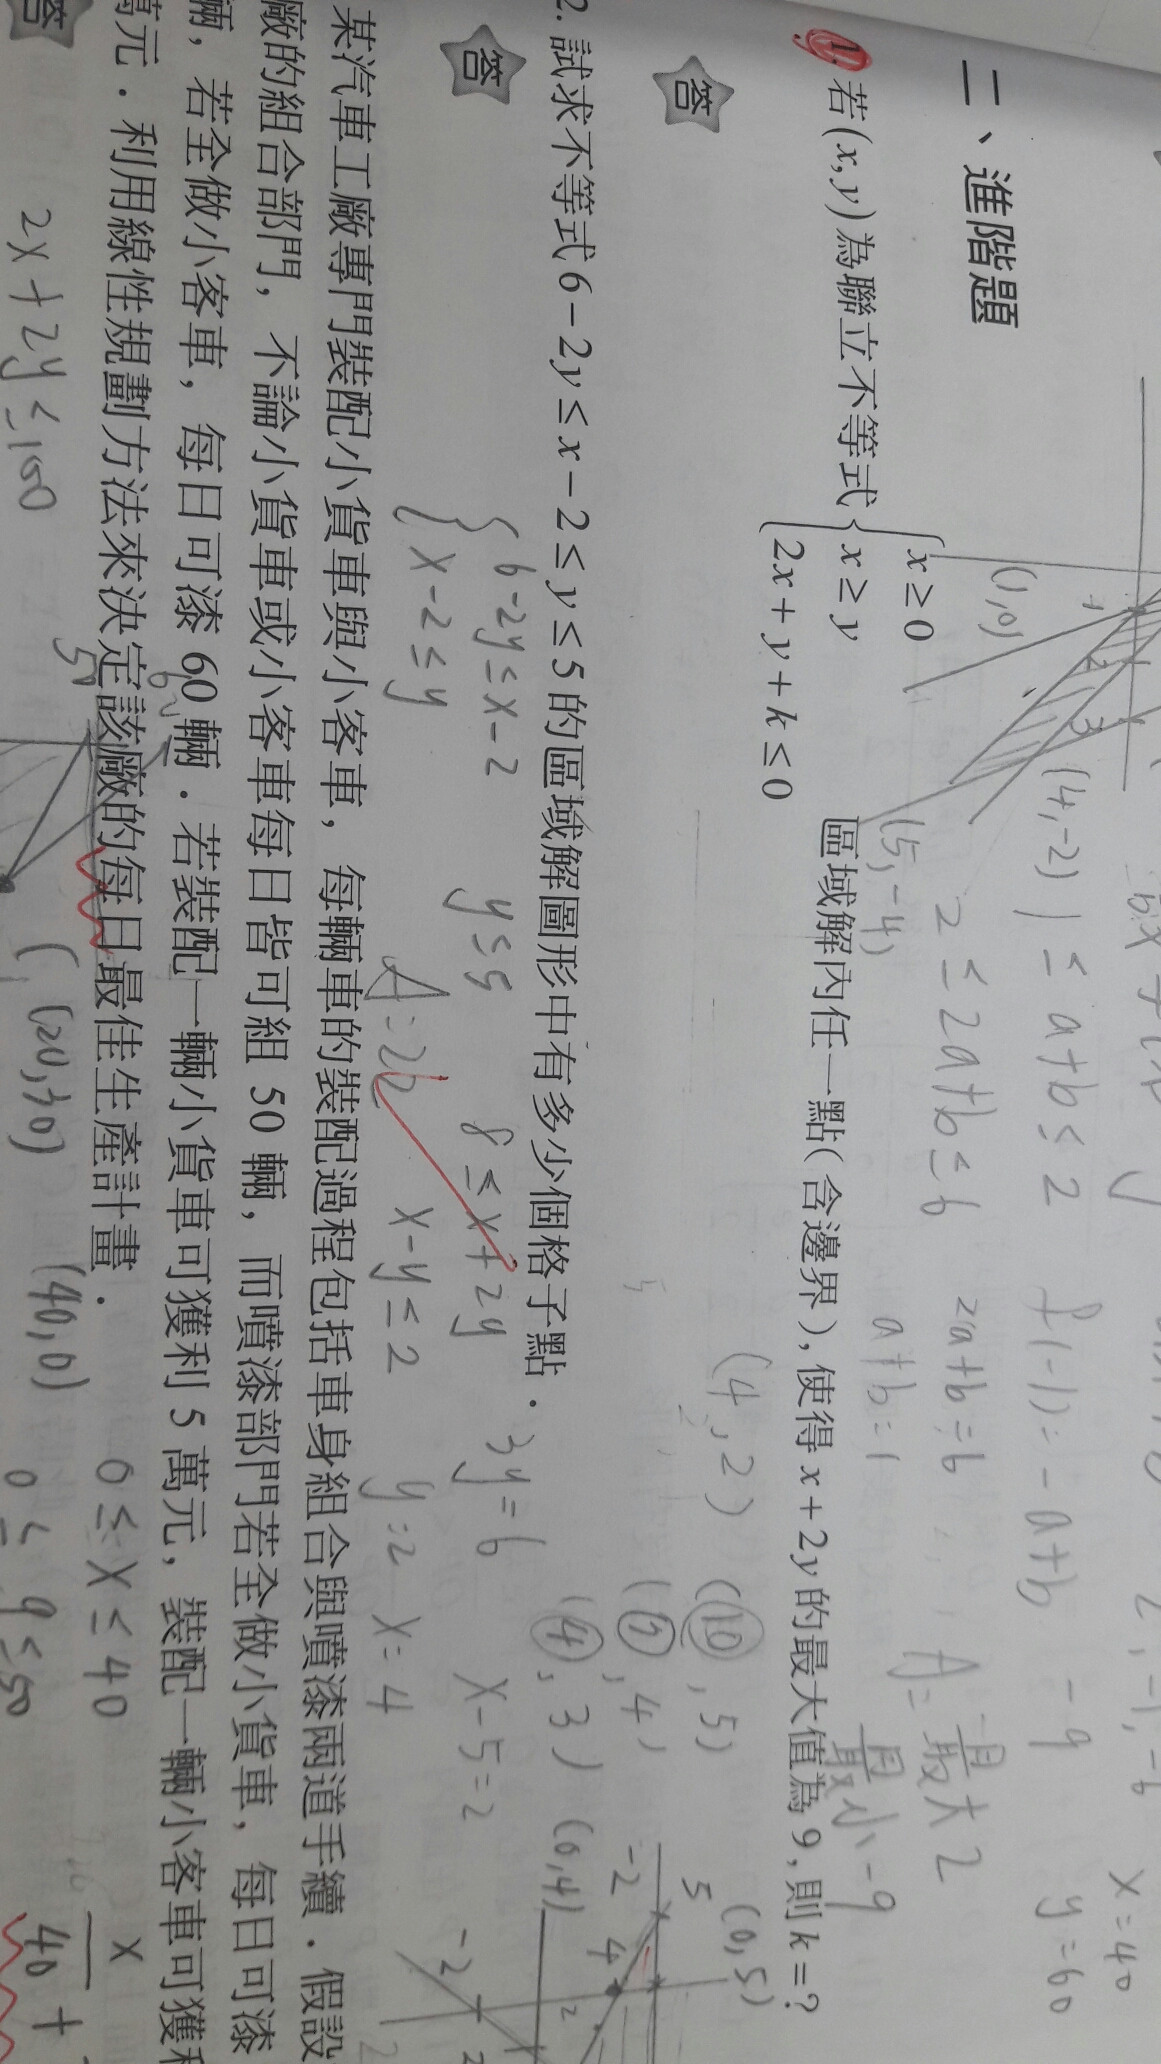 二、進階題
1. 若(x, y)為聯立不等式{x ≥ 0
x ≥ y
2x + y + k ≤ 0
區域解內任一點(含邊界), 使得 x + 2y 的最大值為 9, 則 k = ?
答
2. 試求不等式 6 − 2y ≤ x − 2 ≤ y ≤ 5 的區域解圖形中有多少個格子點.
答
某汽車工廠專門裝配小貨車與小客車, 每輛車的裝配過程包括車身組合與噴漆兩道手續. 假設
廠的組合部門, 不論小貨車或小客車每日皆可組 50 輛, 而噴漆部門若全做小貨車, 每日可漆
輛, 若全做小客車, 每日可漆 60 輛. 若裝配一輛小貨車可獲利 5 萬元, 裝配一輛小客車可獲利
萬元. 利用線性規劃方法來決定該廠的每日最佳生產計畫.
答
(1,0)
1
2
3
(4,-2)
(5,-4)
1 ≤ a+b ≤ 2
2 ≤ 2a+b ≤ 6
f(-1) = -a+b
2a+b=6
a+b=1
2, -1, -6
-9
最大 2
最小 -9
x=40
y=60
(4,2)
(10, 5)
(7, 4)
(4, 3)
(0,5)
(0,4)
5
-2
4
2
{6-2y ≤ x-2
x-2 ≤ y
y ≤ 5
8 ≤ x+2y
x-y ≤ 2
3y=6
y=2
x=4
x-5=2
A=26
-2
2
2x+2y ≤ 100
50
60
(20,30)
(40,0)
0 ≤ x ≤ 40
0 ≤ y ≤ 50
x
40 +